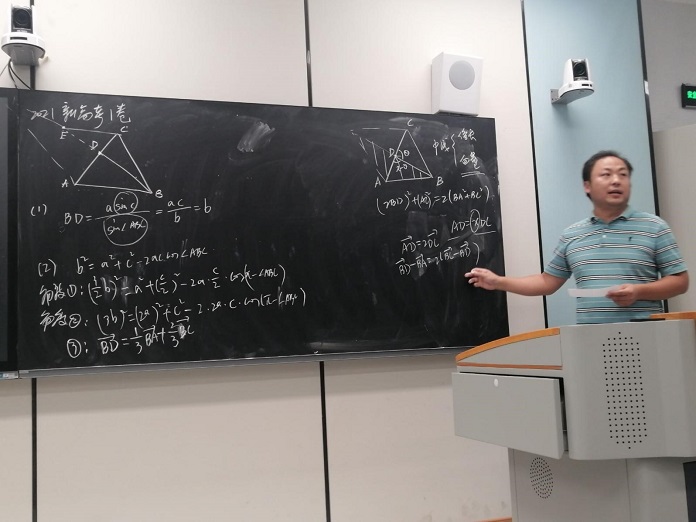 2021 新高考1卷
E
C
D
A
B
(1) BD = a sin C / sin∠ABC = ac / b = b
(2) b² = a² + c² - 2ac cos∠ABC
角度①: (2/3 b)² = a² + (c/2)² - 2a · c/2 · cos(π-∠ABC)
角度②: (3b)² = (2a)² + c² - 2·2a·c·cos(π-∠ABC)
③: BD = 1/3 BA + 2/3 BC
C
D
A
B
中线
向量
(2BD)² + (AC)² = 2(BA² + BC²)
AD = 2DC
AD = 2DC
BD - BA = 2(BC - BD)